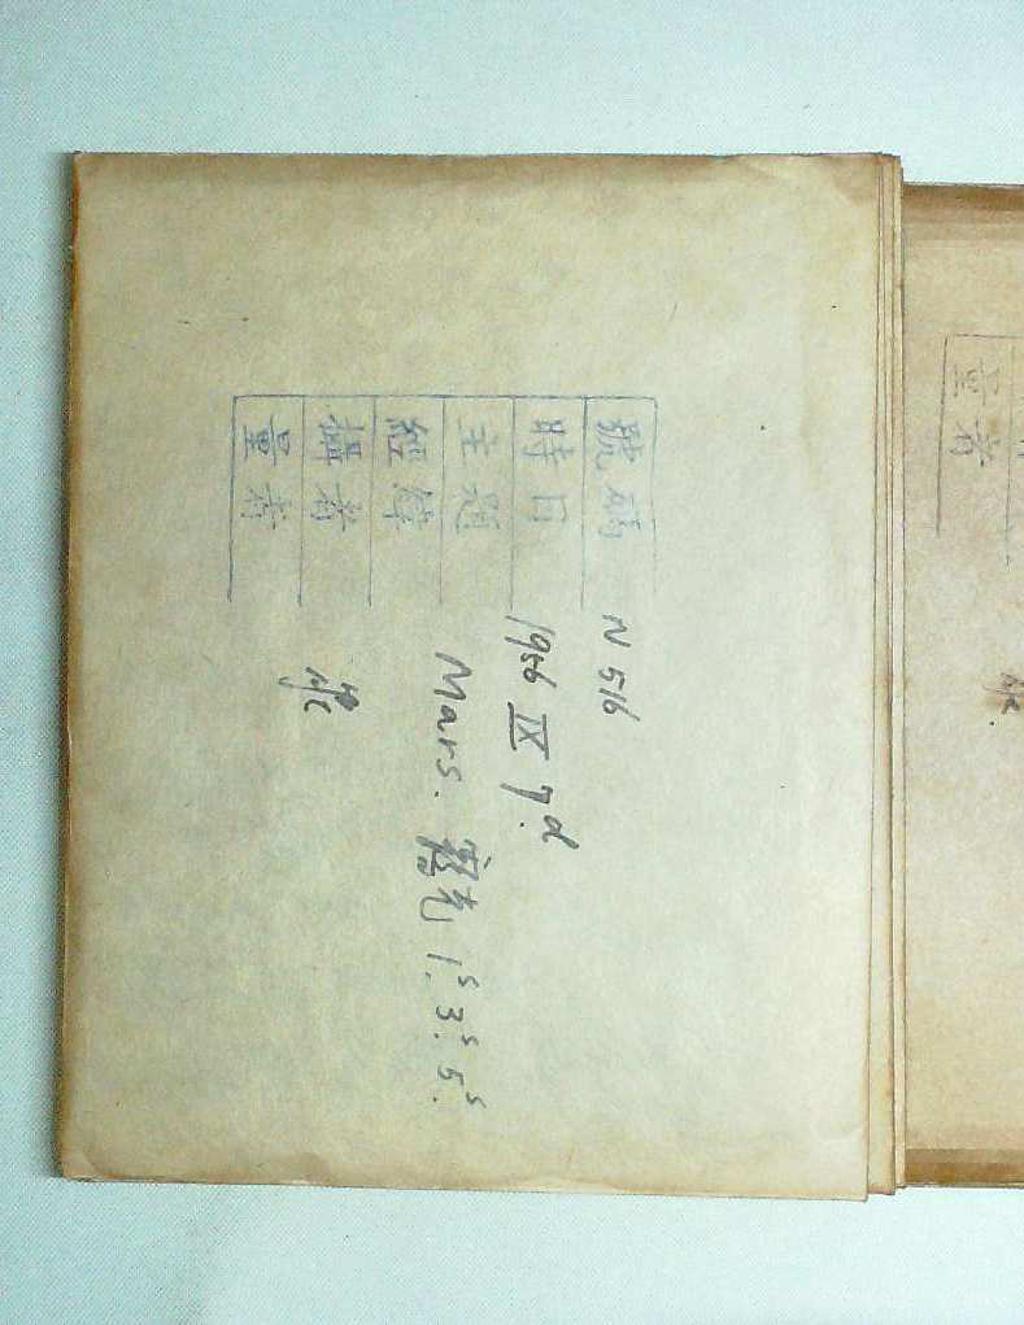 號碼 N 516
時日 1956 IX 7.d
主題 Mars. 露光 1.s 3.s 5.s
經緯
攝者
量者
量者